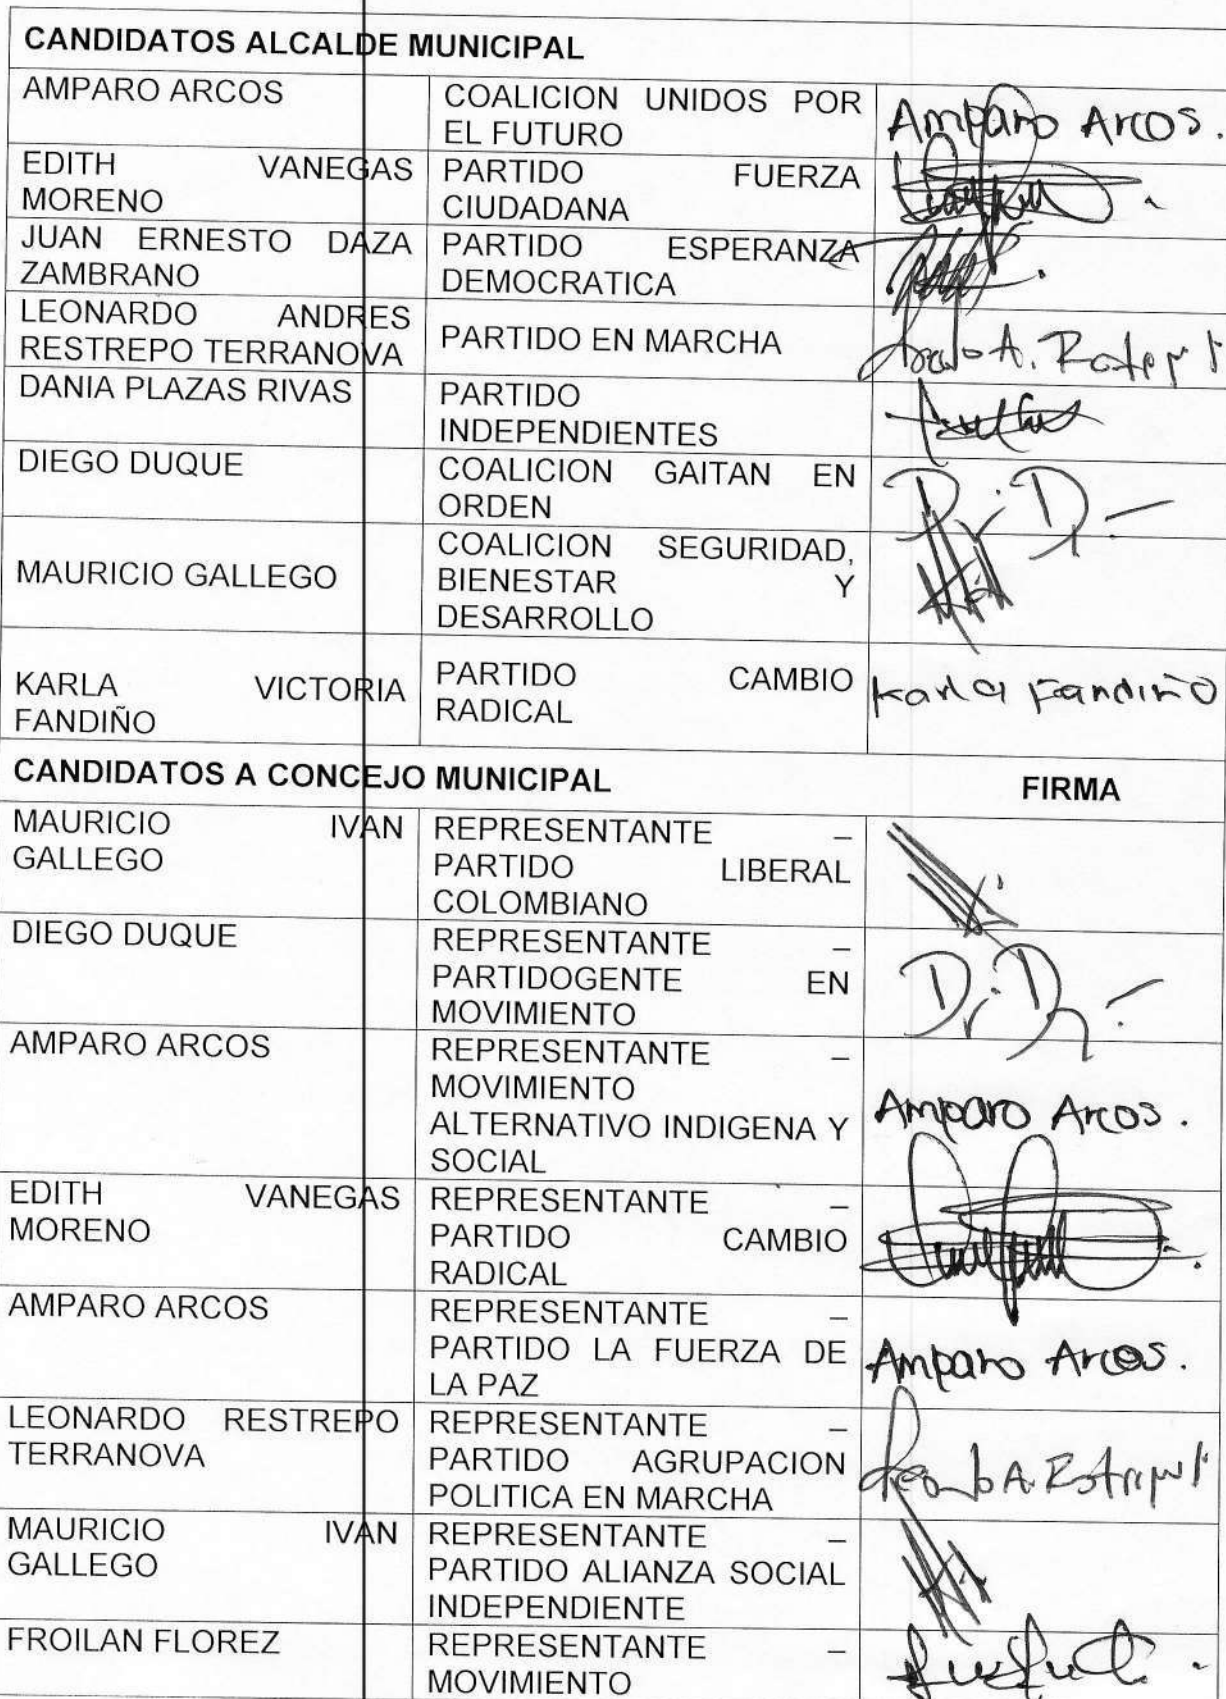 CANDIDATOS ALCALDE MUNICIPAL
AMPARO ARCOS
COALICION UNIDOS POR
EL FUTURO
Amparo Arcos.
EDITH VANEGAS
MORENO
PARTIDO FUERZA
CIUDADANA
JUAN ERNESTO DAZA
ZAMBRANO
PARTIDO ESPERANZA
DEMOCRATICA
LEONARDO ANDRES
RESTREPO TERRANOVA
PARTIDO EN MARCHA
DANIA PLAZAS RIVAS
PARTIDO
INDEPENDIENTES
DIEGO DUQUE
COALICION GAITAN EN
ORDEN
MAURICIO GALLEGO
COALICION SEGURIDAD,
BIENESTAR Y
DESARROLLO
KARLA VICTORIA
FANDIÑO
PARTIDO CAMBIO
RADICAL
Karla Fandiño
CANDIDATOS A CONCEJO MUNICIPAL FIRMA
MAURICIO IVAN
GALLEGO
REPRESENTANTE –
PARTIDO LIBERAL
COLOMBIANO
DIEGO DUQUE
REPRESENTANTE –
PARTIDOGENTE EN
MOVIMIENTO
AMPARO ARCOS
REPRESENTANTE –
MOVIMIENTO
ALTERNATIVO INDIGENA Y
SOCIAL
Amparo Arcos.
EDITH VANEGAS
MORENO
REPRESENTANTE –
PARTIDO CAMBIO
RADICAL
AMPARO ARCOS
REPRESENTANTE –
PARTIDO LA FUERZA DE
LA PAZ
Amparo Arcos.
LEONARDO RESTREPO
TERRANOVA
REPRESENTANTE –
PARTIDO AGRUPACION
POLITICA EN MARCHA
MAURICIO IVAN
GALLEGO
REPRESENTANTE –
PARTIDO ALIANZA SOCIAL
INDEPENDIENTE
FROILAN FLOREZ
REPRESENTANTE –
MOVIMIENTO